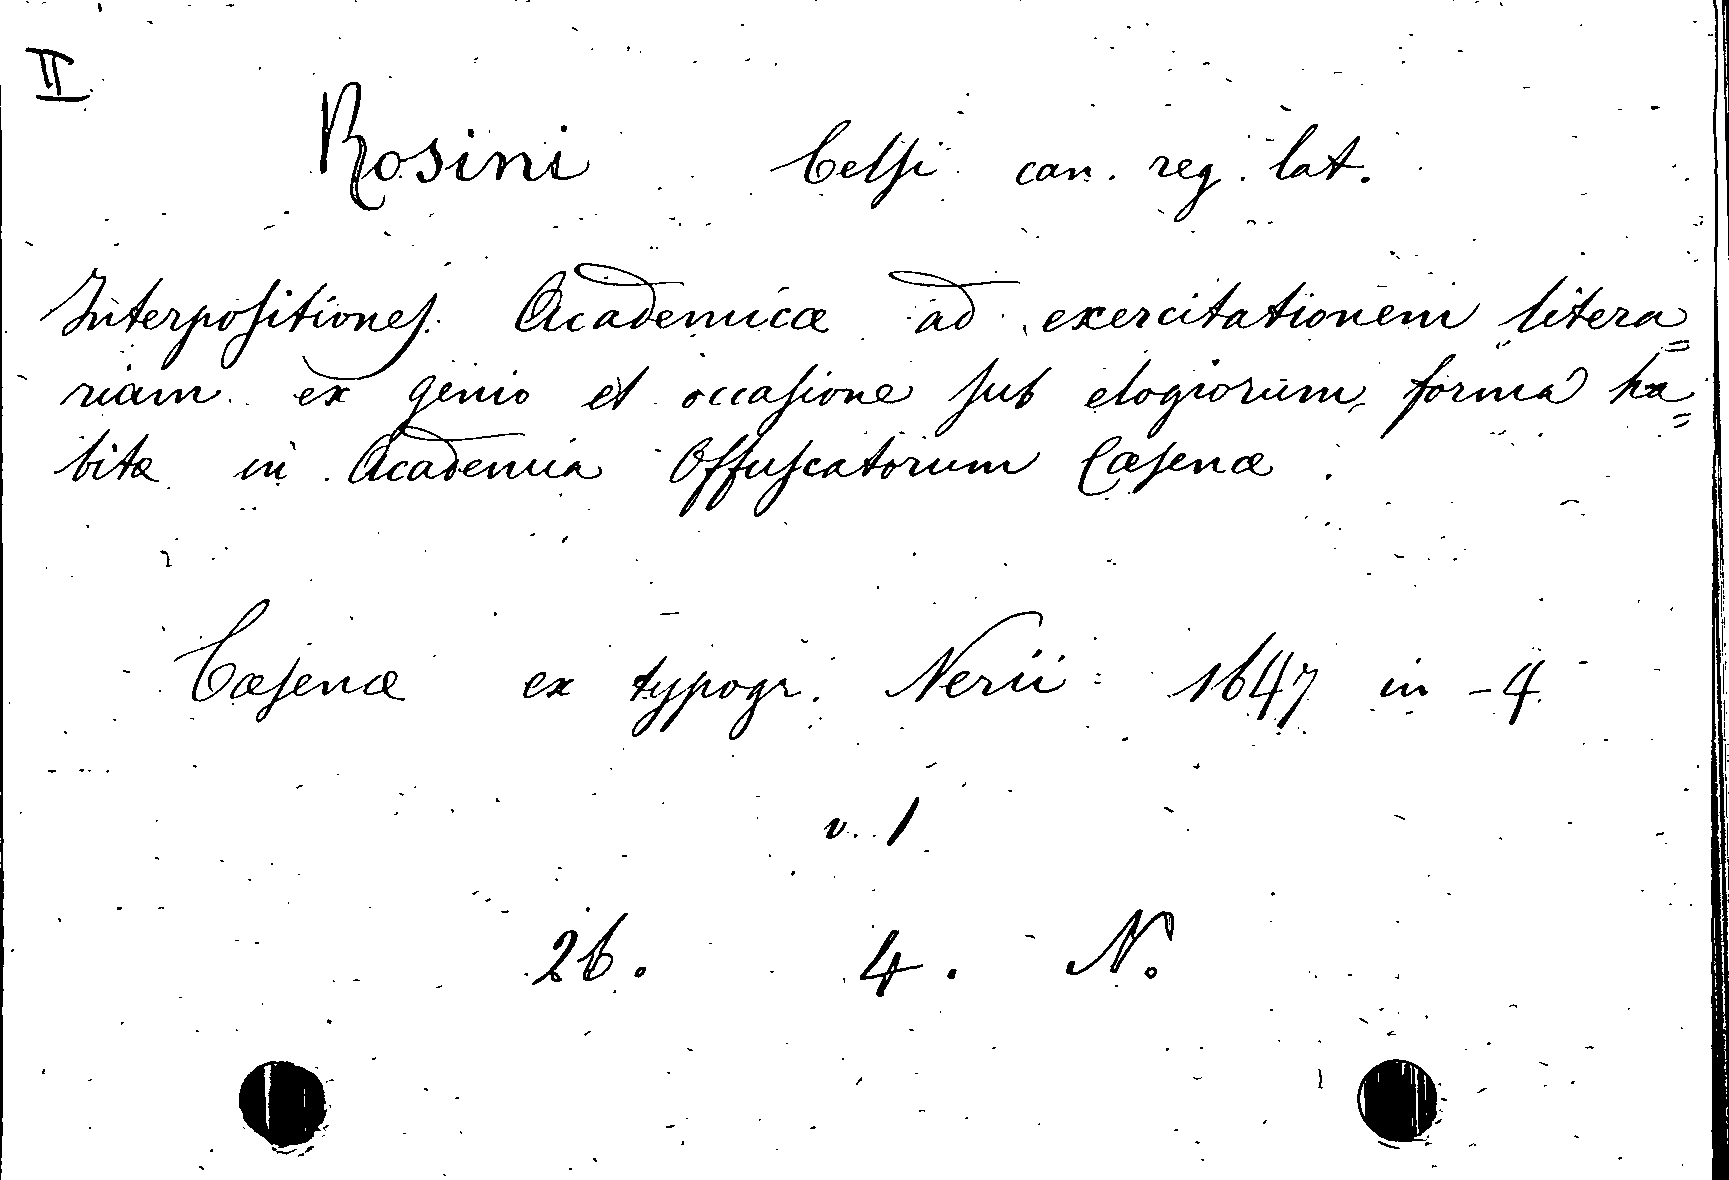 II
Rosini Celsi can. reg. lat.
Interpositiones Academicæ ad exercitationem litera=
riam ex genio et occasione sub elogiorum forma ha=
bitæ in Academia Offuscatorum Cæsenæ.
Cæsenæ ex typogr. Nerii 1647 in -4
v. 1
26. 4. N.